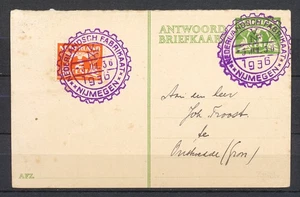 ANTWOORD
BRIEFKAART
NEDERLANDSCH FABRIKAAT
1936
NIJMEGEN
NEDERLANDSCH FABRIKAAT
1936
NIJMEGEN
Aan den heer
Joh. Troost
te
(Gron)